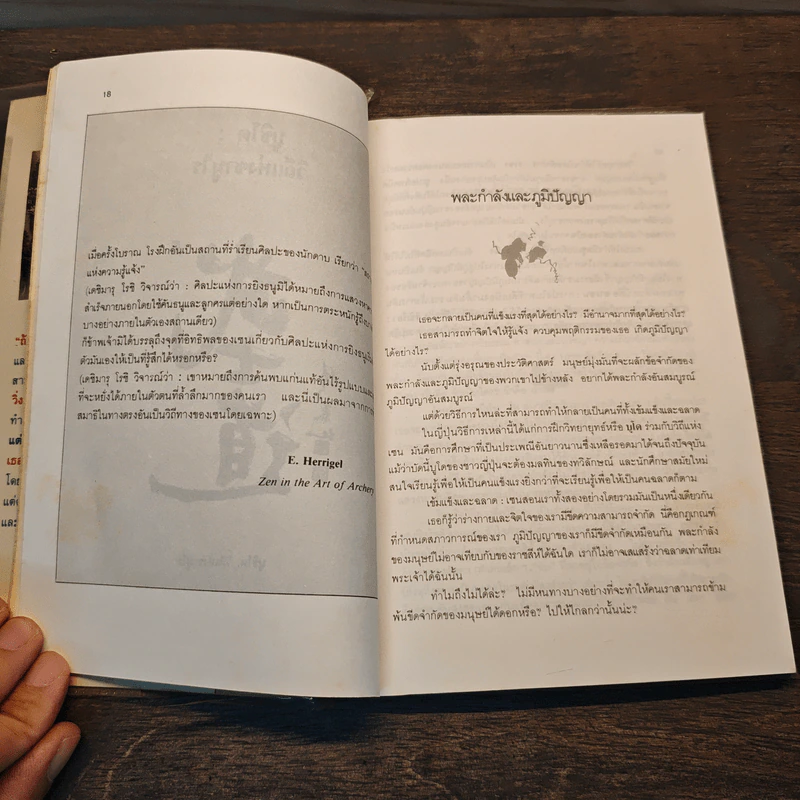 18
เมื่อครั้งโบราณ โรงฝึกอันเป็นสถานที่ร่ำเรียนศิลปะของนักดาบ เรียกว่า
แห่งความรู้แจ้ง”
(เดชิมารุ โรชิ วิจารณ์ว่า : ศิลปะแห่งการยิงธนูมิได้หมายถึงการแสวงหา
สำเร็จภายนอกโดยใช้คันธนูและลูกศรแต่อย่างใด หากเป็นการตระหนักรู้ถึง
บางอย่างภายในตัวเองสถานเดียว)
ก็ข้าพเจ้ามิได้บรรลุถึงจุดที่อิทธิพลของเซนเกี่ยวกับศิลปะแห่งการยิงธนู
ตัวมันเองให้เป็นที่รู้สึกได้หรอกหรือ?
(เดชิมารุ โรชิ วิจารณ์ว่า : เขาหมายถึงการค้นพบแก่นแท้อันไร้รูปแบบและ
ที่จะหยั่งได้ภายในตัวตนที่ล้ำลึกมากของคนเรา และนี่เป็นผลมาจากการ
สมาธิในทางตรงอันเป็นวิถีทางของเซนโดยเฉพาะ)
E. Herrigel
Zen in the Art of Archery
พละกำลังและภูมิปัญญา
เธอจะกลายเป็นคนที่แข็งแรงที่สุดได้อย่างไร? มีอำนาจมากที่สุดได้อย่างไร?
เธอสามารถทำจิตใจให้รู้แจ้ง ควบคุมพฤติกรรมของเธอ เกิดภูมิปัญญา
ได้อย่างไร?
นับตั้งแต่รุ่งอรุณของประวัติศาสตร์ มนุษย์มุ่งมันที่จะผลักข้อจำกัดของ
พละกำลังและภูมิปัญญาของพวกเขาไปข้างหลัง อยากได้พละกำลังอันสมบูรณ์
ภูมิปัญญาอันสมบูรณ์
แต่ด้วยวิธีการไหนล่ะที่สามารถทำให้กลายเป็นคนที่ทั้งเข้มแข็งและฉลาด
ในญี่ปุ่นวิธีการเหล่านี้ได้แก่การฝึกวิทยายุทธ์หรือ บูโด ร่วมกับวิถีแห่ง
เซน มันคือการศึกษาที่เป็นประเพณีอันยาวนานซึ่งเหลือรอดมาได้จนถึงปัจจุบัน
แม้ว่าบัดนี้บูโดของชาวญี่ปุ่นจะต้องมลทินของทวิลักษณ์ และนักศึกษาสมัยใหม่
สนใจเรียนรู้เพื่อให้เป็นคนแข็งแรงยิ่งกว่าที่จะเรียนรู้เพื่อให้เป็นคนฉลาดก็ตาม
เข้มแข็งและฉลาด : เซนสอนเราทั้งสองอย่างโดยรวมมันเป็นหนึ่งเดียวกัน
เธอก็รู้ว่าร่างกายและจิตใจของเรามีขีดความสามารถจำกัด นี่คือกฎเกณฑ์
ที่กำหนดสภาวการณ์ของเรา ภูมิปัญญาของเราก็มีขีดจำกัดเหมือนกัน พละกำลัง
ของมนุษย์ไม่อาจเทียบกับของราชสีห์ได้ฉันใด เราก็ไม่อาจเสแสร้งว่าฉลาดเท่าเทียม
พระเจ้าได้ฉันนั้น
ทำไมถึงไม่ได้ล่ะ? ไม่มีหนทางบางอย่างที่จะทำให้คนเราสามารถข้าม
พ้นขีดจำกัดของมนุษย์ได้ดอกหรือ? ไปให้ไกลกว่านั้นน่ะ?